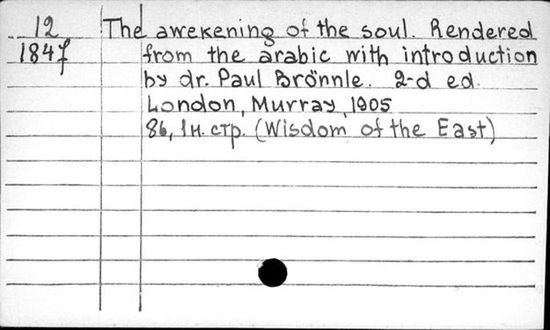 12 The awekening of the soul. Rendered
1847 from the arabic with introduction
by dr. Paul Brönnle. 2-d ed.
London, Murray, 1905
86, 1 н. стр. (Wisdom of the East)